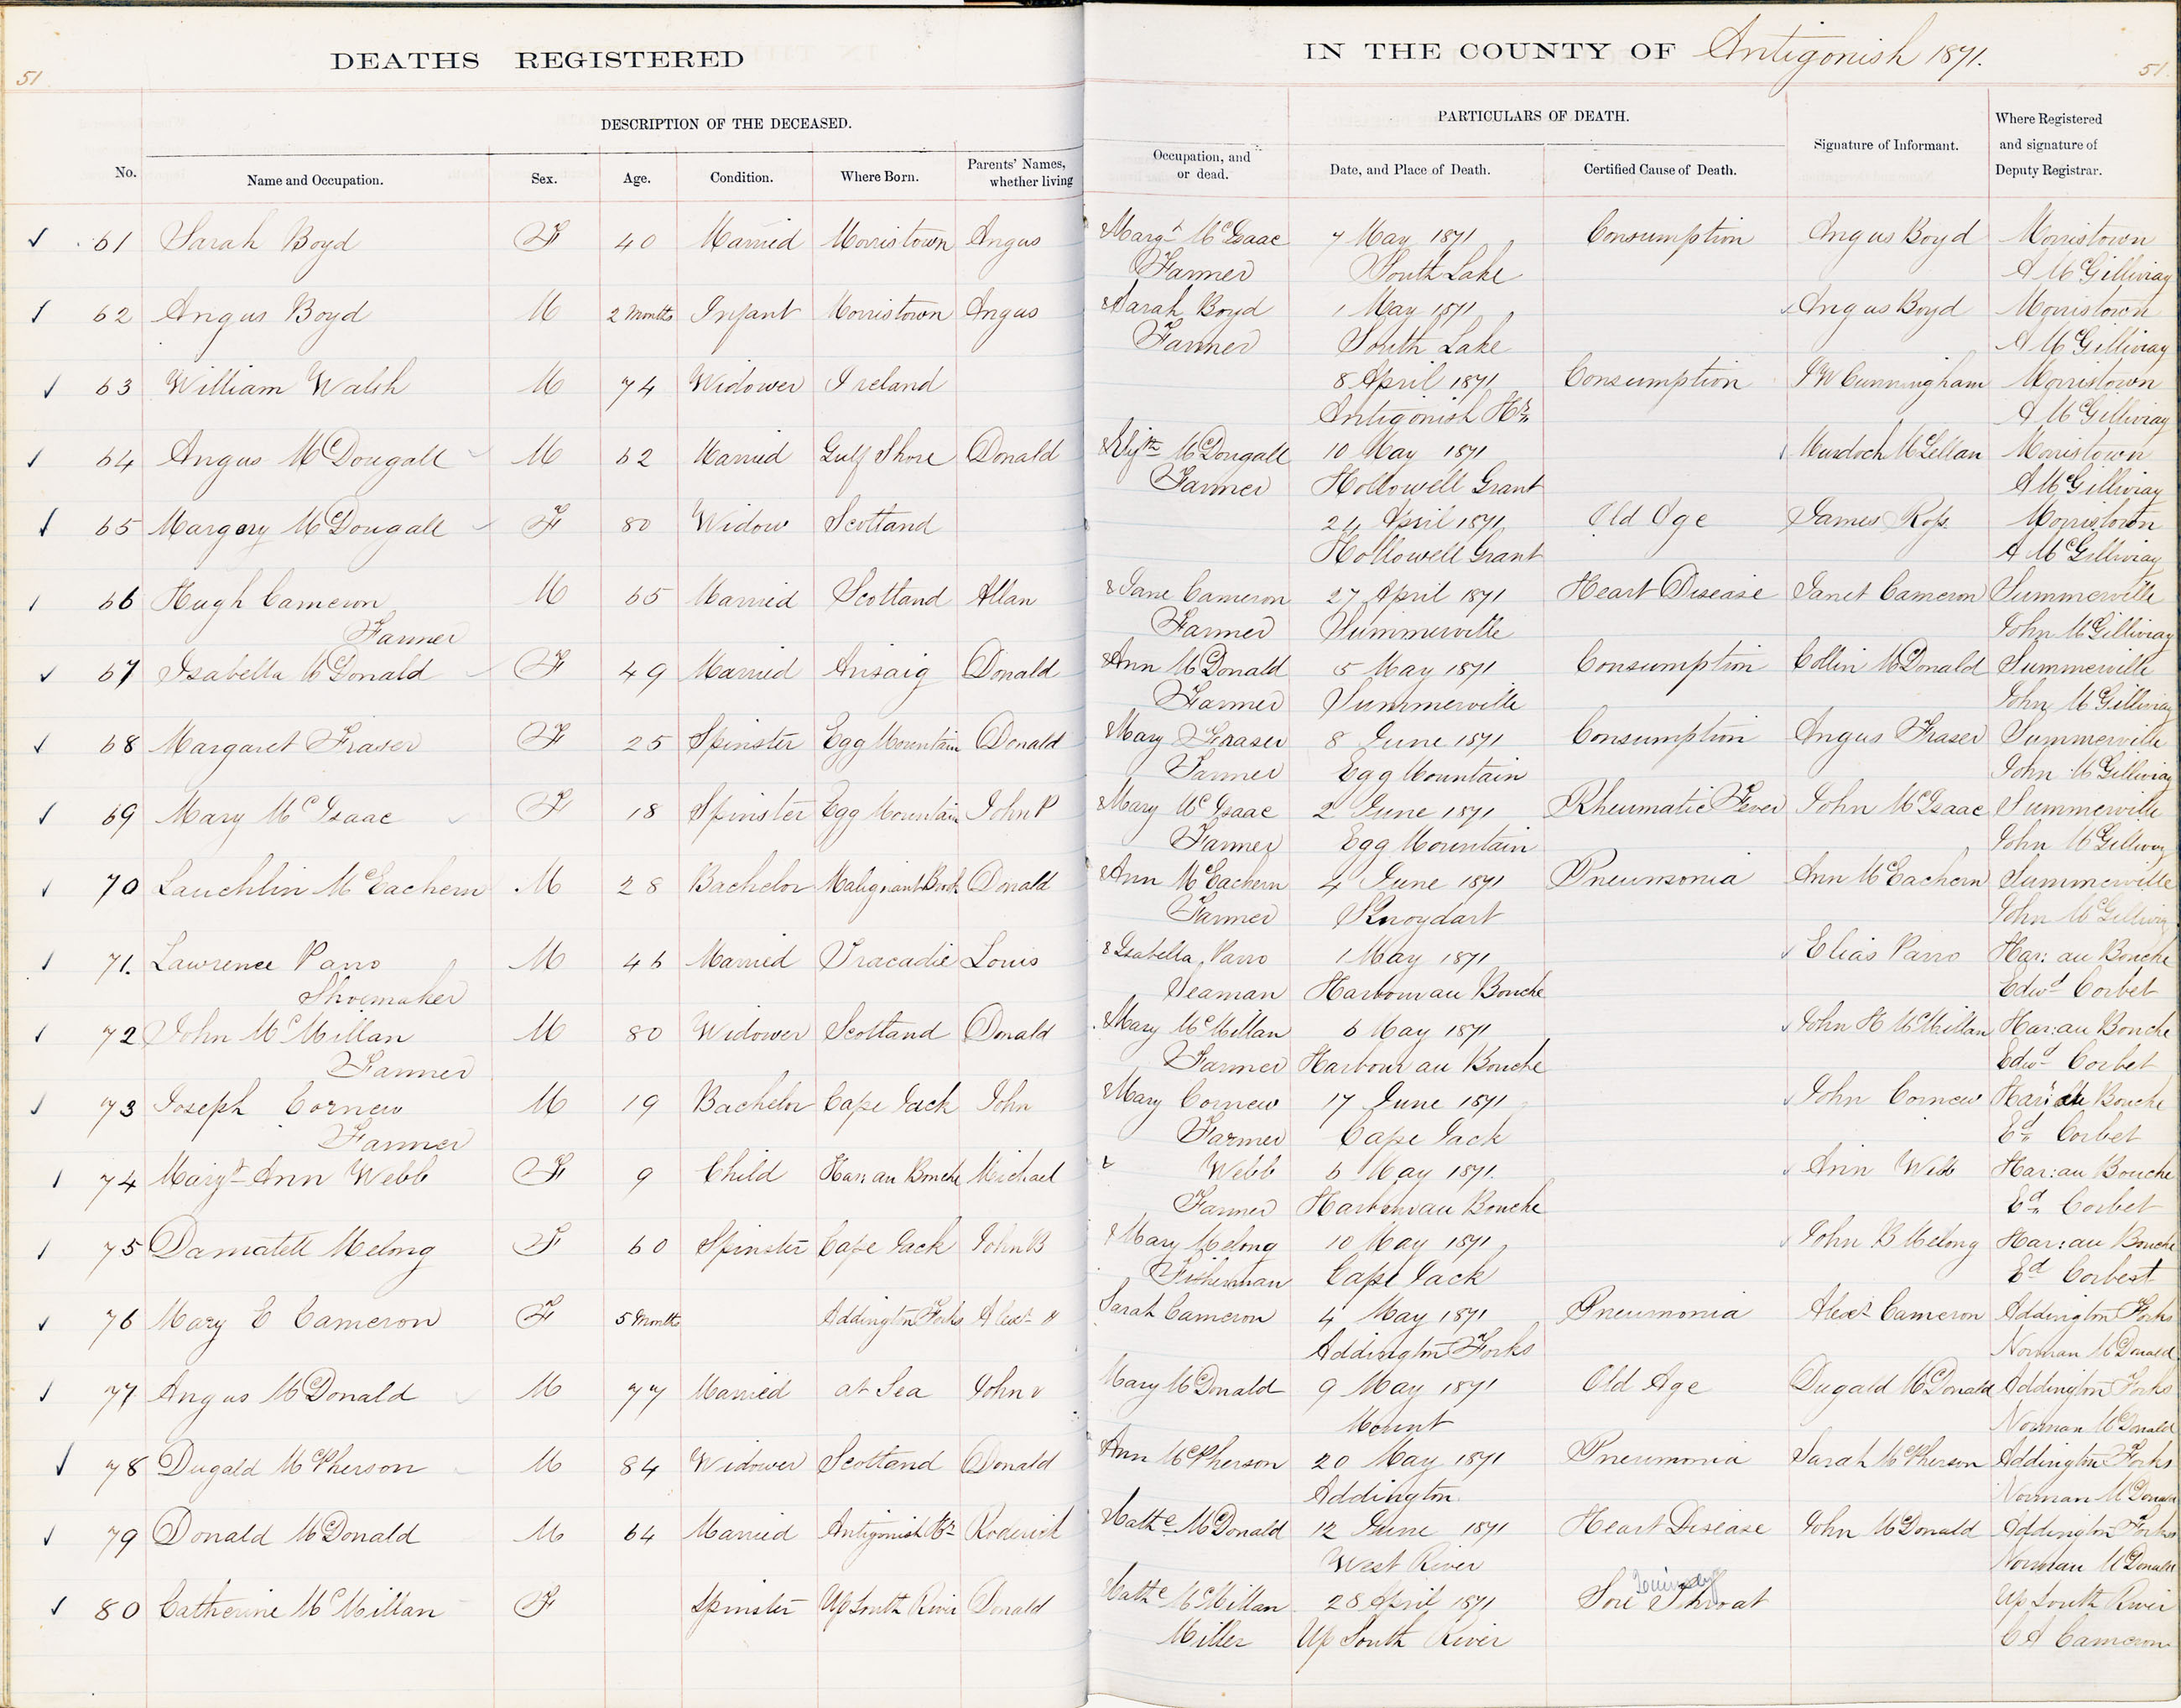 DEATHS REGISTERED IN THE COUNTY OF Antigonish 1871.
51 51
DESCRIPTION OF THE DECEASED. PARTICULARS OF DEATH.
No. Name and Occupation. Sex. Age. Condition. Where Born. Parents' Names, whether living Occupation, and or dead. Date, and Place of Death. Certified Cause of Death. Signature of Informant. Where Registered and signature of Deputy Registrar.
61 Sarah Boyd F 40 Married Morristown Angus & Margt McIsaac 7 May 1871 Consumption Angus Boyd Morristown
Farmer South Lake A McGillivray
62 Angus Boyd M 2 Months Infant Morristown Angus & Sarah Boyd 1 May 1871 Angus Boyd Morristown
Farmer South Lake A McGillivray
63 William Walsh M 74 Widower Ireland 8 April 1871 Consumption Cunningham Morristown
Antigonish Hr A McGillivray
64 Angus McDougall M 62 Married Gulf Shore Donald & McDougall 10 May 1871 Murdoch McLellan Morristown
Farmer Hollowell Grant A McGillivray
65 Margery McDougall F 80 Widow Scotland 24 April 1871 Old Age James Ross Morristown
Hollowell Grant A McGillivray
66 Hugh Cameron M 65 Married Scotland Allan & Jane Cameron 27 April 1871 Heart Disease Janet Cameron Summerville
Farmer Farmer Summerville John McGillivray
67 Isabella McDonald F 49 Married Arisaig Donald & Ann McDonald 5 May 1871 Consumption Collin McDonald Summerville
Farmer Summerville John McGillivray
68 Margaret Fraser F 25 Spinster Egg Mountain Donald & Mary Fraser 8 June 1871 Consumption Angus Fraser Summerville
Farmer Egg Mountain John McGillivray
69 Mary McIsaac F 18 Spinster Egg Mountain John P & Mary McIsaac 2 June 1871 Rheumatic Fever John McIsaac Summerville
Farmer Egg Mountain John McGillivray
70 Lauchlin McEachern M 28 Bachelor Malignant Brook Donald & Ann McEachern 4 June 1871 Pneumonia Ann McEachern Summerville
Farmer Knoydart John McGillivray
71. Lawrence Parro M 46 Married Tracadie Louis & Isabella Parro 1 May 1871 Elias Parro Har: au Bouche
Shoemaker Seaman Harbour au Bouche Edwd Corbet
72 John McMillan M 80 Widower Scotland Donald & Mary McMillan 6 May 1871 John H McMillan Har: au Bouche
Farmer Farmer Harbour au Bouche Edwd Corbet
73 Joseph Cornew M 19 Bachelor Cape Jack John & Mary Cornew 17 June 1871 John Cornew Har: au Bouche
Farmer Farmer Cape Jack Ed Corbet
74 Margt Ann Webb F 9 Child Har: au Bouche Michael & Webb 6 May 1871. Ann Webb Har: au Bouche
Farmer Harbour au Bouche Ed Corbet
75 Damatett Melong F 60 Spinster Cape Jack John B & Mary Melong 10 May 1871 John B Melong Har: au Bouche
Fisherman Cape Jack Ed Corbest
76 Mary E Cameron F 5 Months Addington Forks Alexr & Sarah Cameron 4 May 1871 Pneumonia Alexr Cameron Addington Forks
Addington Forks Norman McDonald
77 Angus McDonald M 77 Married at Sea John & Mary McDonald 9 May 1871 Old Age Dugald McDonald Addington Forks
Mount Norman McDonald
78 Dugald McPherson M 84 Widower Scotland Donald & Ann McPherson 20 May 1871 Pneumonia Sarah McPherson Addington Forks
Addington Norman McDonald
79 Donald McDonald M 64 Married Antigonish Hr Roderick & Cathe McDonald 12 June 1871 Heart Disease John McDonald Addington Forks
West River Norman McDonald
80 Catherine McMillan F Spinster Up South River Donald & Cathe McMillan 28 April 1871 Sore Throat Up South River
Miller Up South River C A Cameron